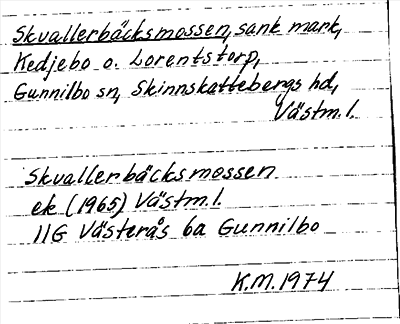 Skvallerbäcksmossen, sank mark,
Kedjebo o. Lorentstorp,
Gunnilbo sn, Skinnskattebergs hd,
Västm.l.
Skvallerbäcksmossen
ek (1965) Västm.l.
11G Västerås 6a Gunnilbo
K.M. 1974